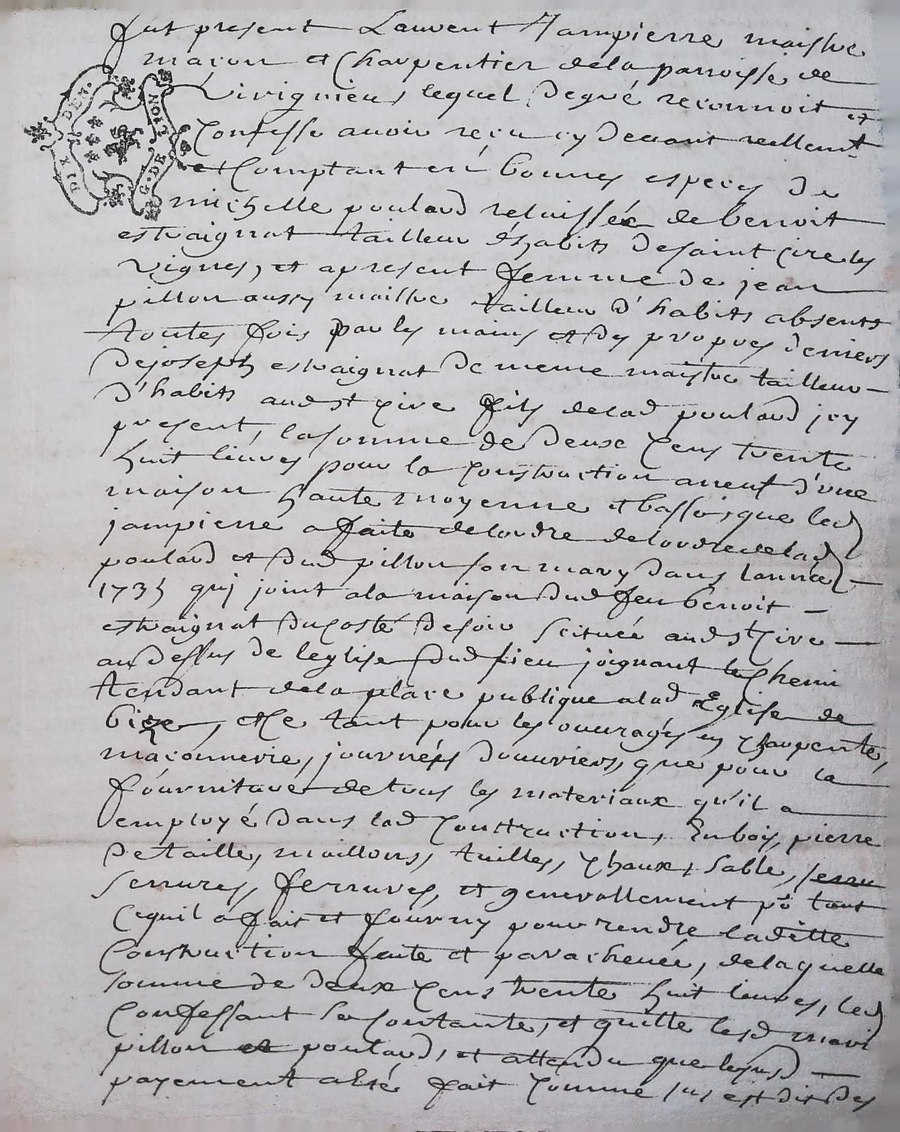 fut present Laurent Jampierre maistre
maçon et Charpentier dela parroisse de
Virignieu, lequel degré reconnoit et
Confesse avoir reçu cy devant reellemt
et Comptant en bonnes especes de
michelle poulard relaissée de benoit
estraignat tailleur d'habits de saint Cire les
vignes, et apresent femme de jean
pillon aussy maistre tailleur d'habits absents
toutes fois par les mains et des propres deniers
de joseph estraignat de meme maistre tailleur
d'habits aud st Cire fils delad poulard icy
present, la somme de deux Cens trente
huit livres pour la Construction a neuf d'une
maison haute moyenne et basse, que led
jampierre a faite delordre delordre delad
poulard et dud pillon son mary dans lannée
1735 qui joint ala maison dud feu benoit
estraignat du costé de soir scituée aud st Cire
au dessus de leglise dud lieu joignant le Chemin
tendant dela place publique alad Eglise de
bize, et Ce tant pour les ouvrages en Charpente,
maçonnerie, journées d'ouvriers, que pour la
fourniture de tous les materiaux qu'il a
employé dans lad Construction, En bois, pierre
de taille, moillons, tuilles, Chaux, sable, serru
serrures, ferrures, et generallement po tout
Cequil a fait et fourny pour rendre laditte
Construction faite et parachevée, de laquelle
somme de deux Cens trente huit livres, led
Confessant se Contante, et quitte lesd mari
pillon et poulard, et attendu que lesusd
payement a été fait Comme sus est dit des
DIX DEN.
G. DE LION